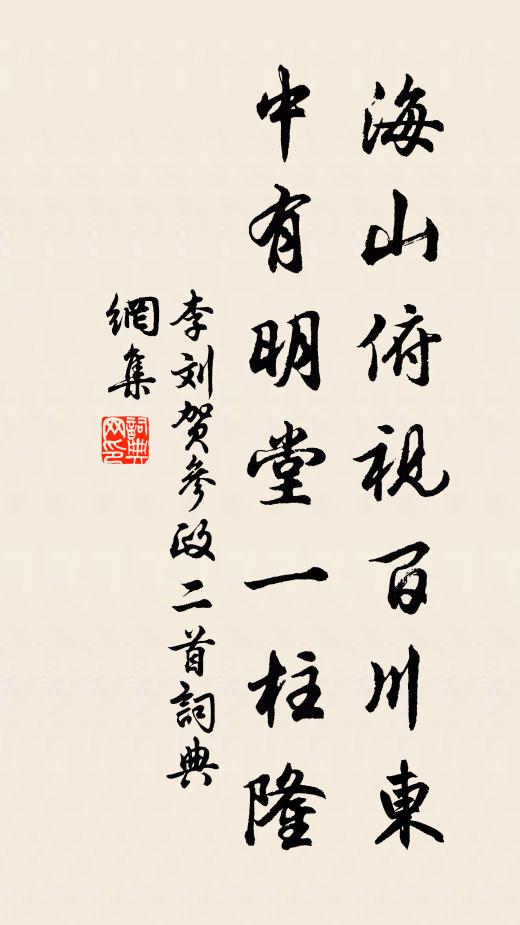 海山俯視百川東
中有明堂一柱隆
李刘贺參政二首詞典
網集
詞典
网印